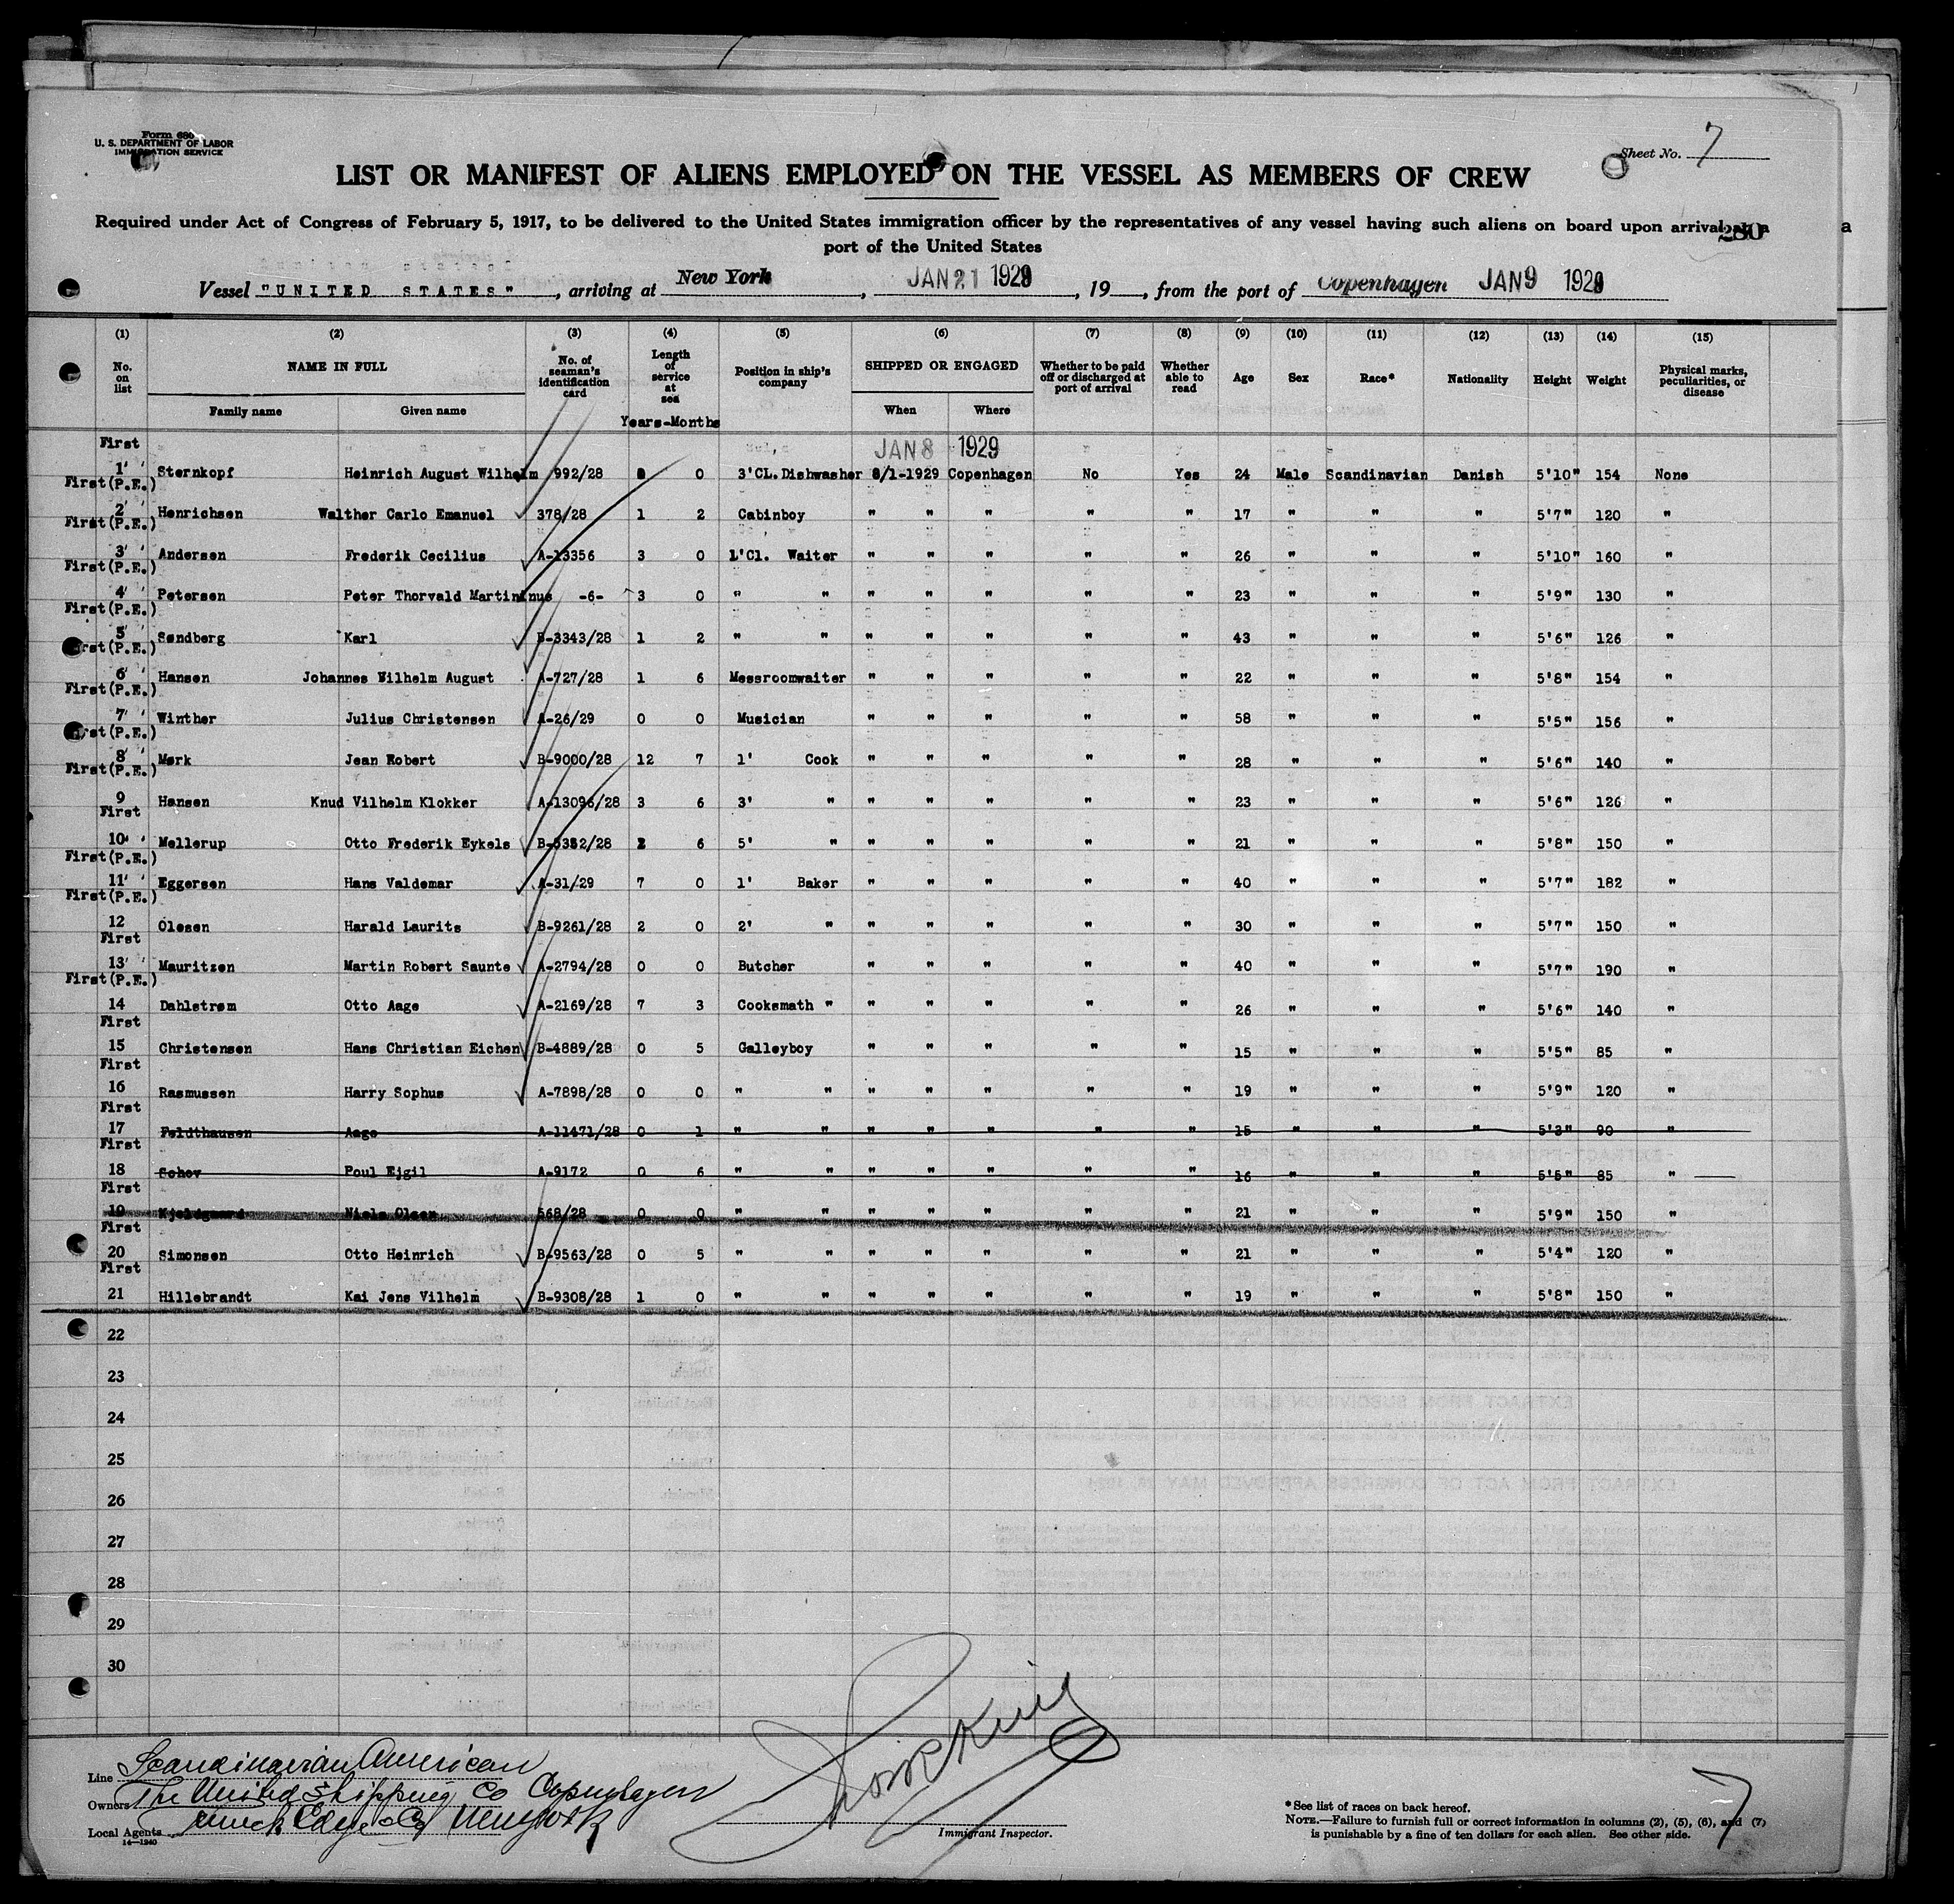 Form 680
U. S. DEPARTMENT OF LABOR
IMMIGRATION SERVICE
Sheet No. 7
LIST OR MANIFEST OF ALIENS EMPLOYED ON THE VESSEL AS MEMBERS OF CREW
Required under Act of Congress of February 5, 1917, to be delivered to the United States immigration officer by the representatives of any vessel having such aliens on board upon arrival at a
port of the United States
280
Vessel "UNITED STATES", arriving at New York, JAN 21 1929, 19 , from the port of Copenhagen JAN 9 1929
(1) (2) (3) (4) (5) (6) (7) (8) (9) (10) (11) (12) (13) (14) (15)
No. on list NAME IN FULL Family name Given name No. of seaman's identification card Length of service at sea Years-Months Position in ship's company SHIPPED OR ENGAGED When Where Whether to be paid off or discharged at port of arrival Whether able to read Age Sex Race* Nationality Height Weight Physical marks, peculiarities, or disease
First JAN 8 1929
1 Sternkopf Heinrich August Wilhelm 992/28 0 3'CL.Dishwasher 8/1-1929 Copenhagen No Yes 24 Male Scandinavian Danish 5'10" 154 None
First(P.E.)
2 Henrichsen Walther Carlo Emanuel 378/28 1 2 Cabinboy " " " " " 17 " " " 5'7" 120 "
First(P.E.)
3 Andersen Frederik Cecilius A-13356 3 0 1'Cl. Waiter " " " " " 26 " " " 5'10" 160 "
First(P.E.)
4 Petersen Peter Thorvald Martininus -6- 3 0 " " " " " " " 23 " " " 5'9" 130 "
First(P.E.)
5 Søndberg Karl B-3343/28 1 2 " " " " " " " 43 " " " 5'6" 126 "
First(P.E.)
6 Hansen Johannes Wilhelm August A-727/28 1 6 Messroomwaiter " " " " " 22 " " " 5'8" 154 "
First(P.E.)
7 Winther Julius Christensen A-26/29 0 0 Musician " " " " " 58 " " " 5'5" 156 "
First(P.E.)
8 Mørk Jean Robert B-9000/28 12 7 1' Cook " " " " " 28 " " " 5'6" 140 "
First(P.E.)
9 Hansen Knud Vilhelm Klokker A-13096/28 3 6 3' " " " " " " 23 " " " 5'6" 126 "
First
10 Mellerup Otto Frederik Eykels 6 5' " " " " " " 21 " " " 5'8" 150 "
First(P.E.)
11 Eggersen Hans Valdemar A-31/29 7 0 1' Baker " " " " " 40 " " " 5'7" 182 "
First(P.E.)
12 Olesen Harald Laurits B-9261/28 2 0 2' " " " " " " 30 " " " 5'7" 150 "
First
13 Mauritzen Martin Robert Saunte A-2794/28 0 0 Butcher " " " " " 40 " " " 5'7" 190 "
First(P.E.)
14 Dahlstrøm Otto Aage A-2169/28 7 3 Cooksmath " " " " " " 26 " " " 5'6" 140 "
First
15 Christensen Hans Christian Eichen B-4889/28 0 5 Galleyboy " " " " " 15 " " " 5'5" 85 "
First
16 Rasmussen Harry Sophus A-7898/28 0 0 " " " " " " " 19 " " " 5'9" 120 "
First
17 Feldthausen Aage A-11471/28 0 1 " " " " " " " 15 " " " 5'3" 90 "
First
18 Schov Poul Ejgil A-9172 0 6 " " " " " " " 16 " " " 5'5" 85 "
First
19 Kjeldgaard Niels Olsen 568/28 0 0 " " " " " " " 21 " " " 5'9" 150 "
First
20 Simonsen Otto Heinrich B-9563/28 0 5 " " " " " " " 21 " " " 5'4" 120 "
First
21 Hillebrandt Kai Jens Vilhelm B-9308/28 1 0 " " " " " " " 19 " " " 5'8" 150 "
22
23
24
25
26
27
28
29
30
Line Scandinavian American
Owners The United Shipping Co Copenhagen
Local Agents New York
14-1240
Immigrant Inspector.
*See list of races on back hereof.
NOTE.—Failure to furnish full or correct information in columns (2), (5), (6), and (7)
is punishable by a fine of ten dollars for each alien. See other side.
7